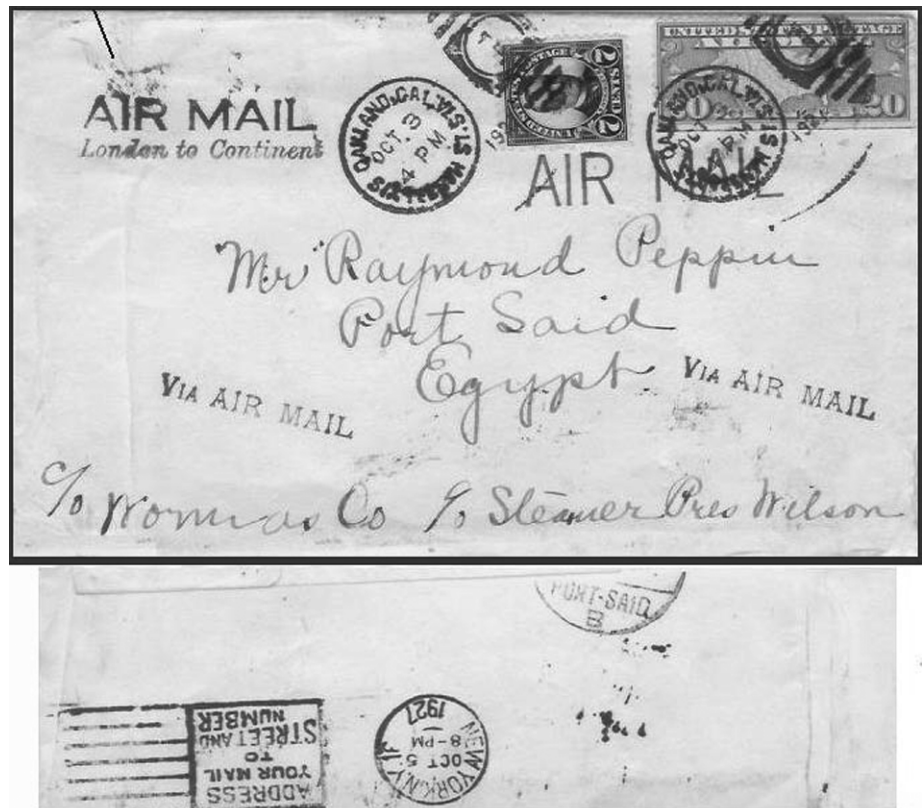 AIR MAIL
London to Continent
OAKLAND, CAL. OCT 3 4 PM 192
2 CENTS 2
UNITED STATES POSTAGE
20
OAKLAND, CAL. OCT PM 192
AIR MAIL
Mr Raymond Peppin
Port Said
Egypt
VIA AIR MAIL
VIA AIR MAIL
c/o Co c/o Steamer Pres Wilson
PORT-SAID
B
ADDRESS
YOUR MAIL
TO
STREET AND
NUMBER
NEW YORK, N.Y.
OCT 5
8-PM
1927